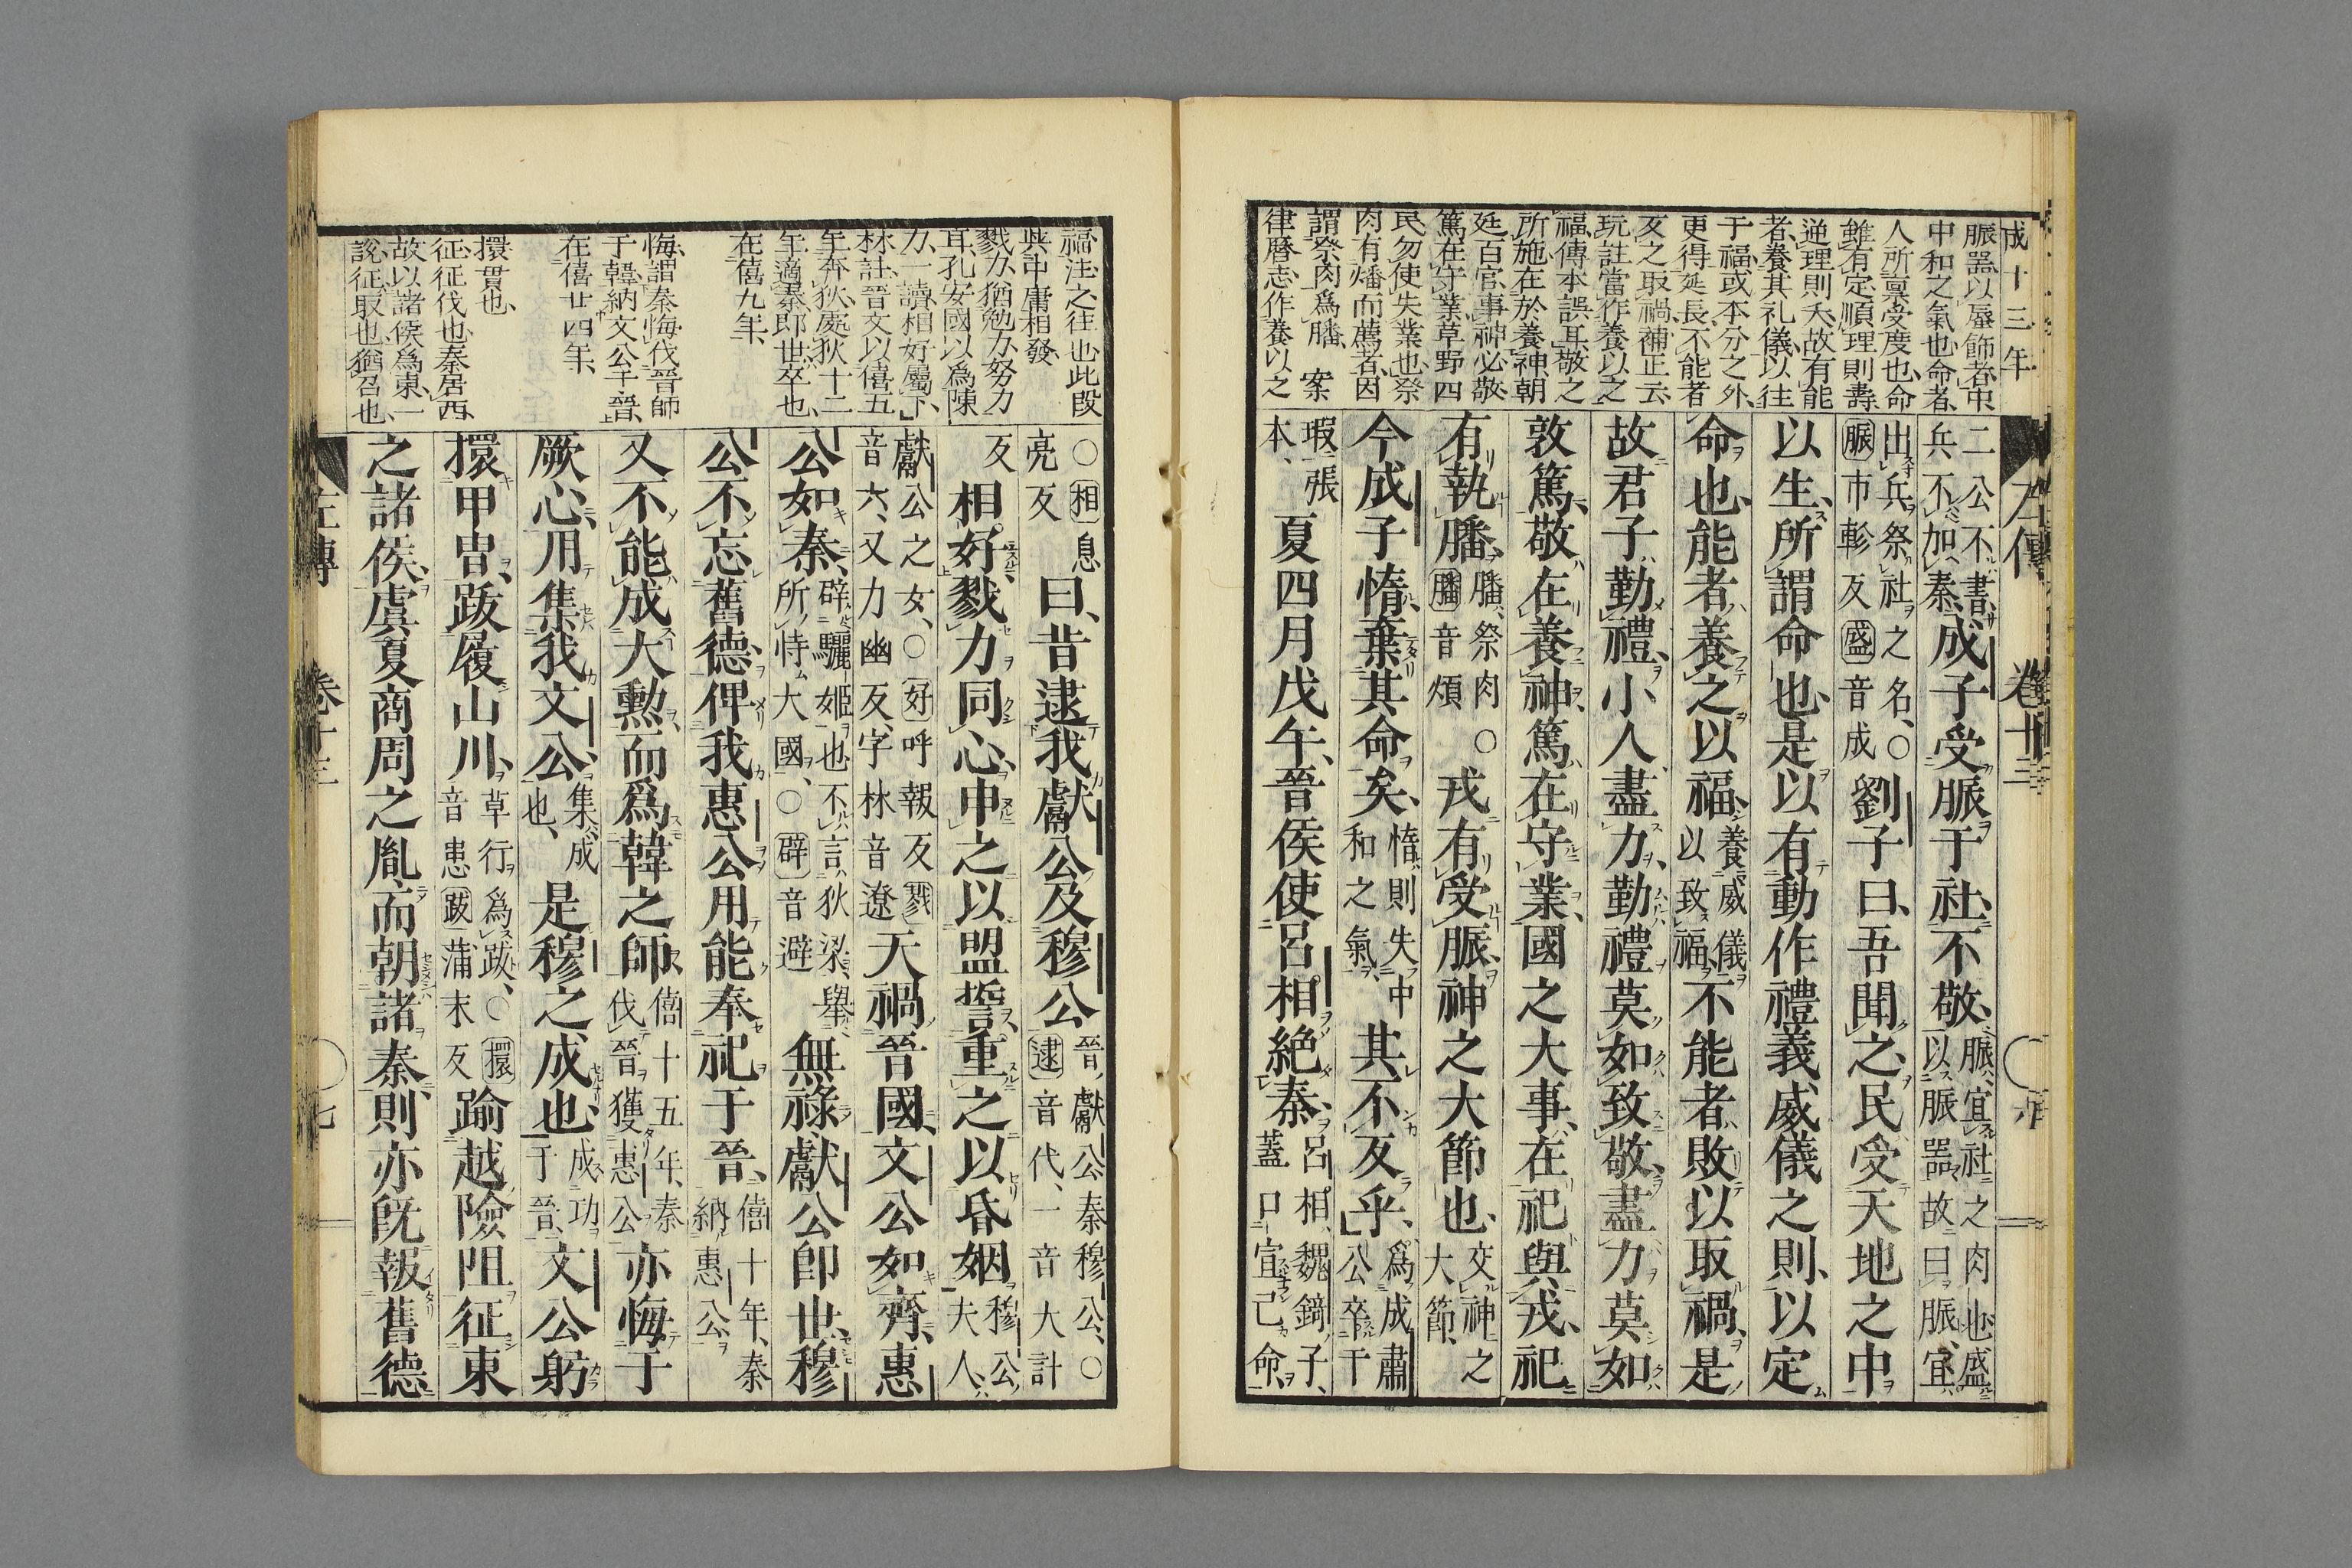 成十三年
脤器以蜃飾者中、
中和之氣也命者、
人所稟受度也、命
雖有定順理則壽
逆理則夭故有能
者養其礼儀以往
于福或本分之外、
更得延長不能者
反之取禍補正云
玩註當作養以之
福傳本誤耳敬之
所施在於養神朝
廷百官事神必敬
篤在守業草野四
民勿使失業也祭
肉有燔而薦者因
謂祭肉爲膰、案
律曆志作養以之
左傳 卷十三
二公不書、兵不加秦、成子受脤于社、不敬、脤宜社之肉也盛以脤器故曰脤、宜
出兵祭社之名、○脤市軫反盛音成劉子曰、吾聞之、民受天地之中
以生、所謂命也、是以有動作禮義威儀之則、以定
命也、能者養之以福、養威儀以致福不能者敗以取禍、是
故君子勤禮、小人盡力、勤禮莫如致敬、盡力莫如
敦篤、敬在養神、篤在守業、國之大事、在祀與戎、祀
有執膰、膰、祭肉○膰音煩戎有受脤、神之大節也、交神之大節、
今成子惰、棄其命矣、惰則失中和之氣、其不反乎、爲成肅公卒于
瑕張本、夏四月戊午、晉侯使呂相絶秦、呂相、魏錡子、蓋口宣己命、
福注之往也此段
與中庸相發
戮力、猶勉力努力
耳孔安國以爲陳
力、一讀相好屬下、
林註晉文以僖五
年奔狄處狄十二
年適秦即世卒也、
在僖九年、
悔謂秦悔伐晉師
于韓納文公于晉、
在僖廿四年、
擐貫也、
征征伐也秦居西
故以諸侯爲東、一
說征取也猶召也、
○相息亮反曰、昔逮我獻公及穆公晉獻公秦穆公、○逮音代、一音大計
反相好戮力同心、申之以盟誓、重之以昏姻、穆公夫人、
獻公之女、○好呼報反戮音六、又力幽反、字林音遼天禍晉國、文公如齊、惠
公如秦、辟驪姬也不言狄梁、舉所恃大國、○辟音避無祿、獻公卽世、穆
公不忘舊德、俾我惠公用能奉祀于晉、僖十年、秦納惠公、
又不能成大勲、而爲韓之師、僖十五年、秦伐晉獲惠公亦悔于
厥心、用集我文公、集成也、是穆之成也、成功于晉、文公躬
擐甲冑、跋履山川、草行爲跋、○擐音患跋蒲末反踰越險阻、征東
之諸侯、虞夏商周之胤、而朝諸秦、則亦旣報舊德
左傳 卷十三 七